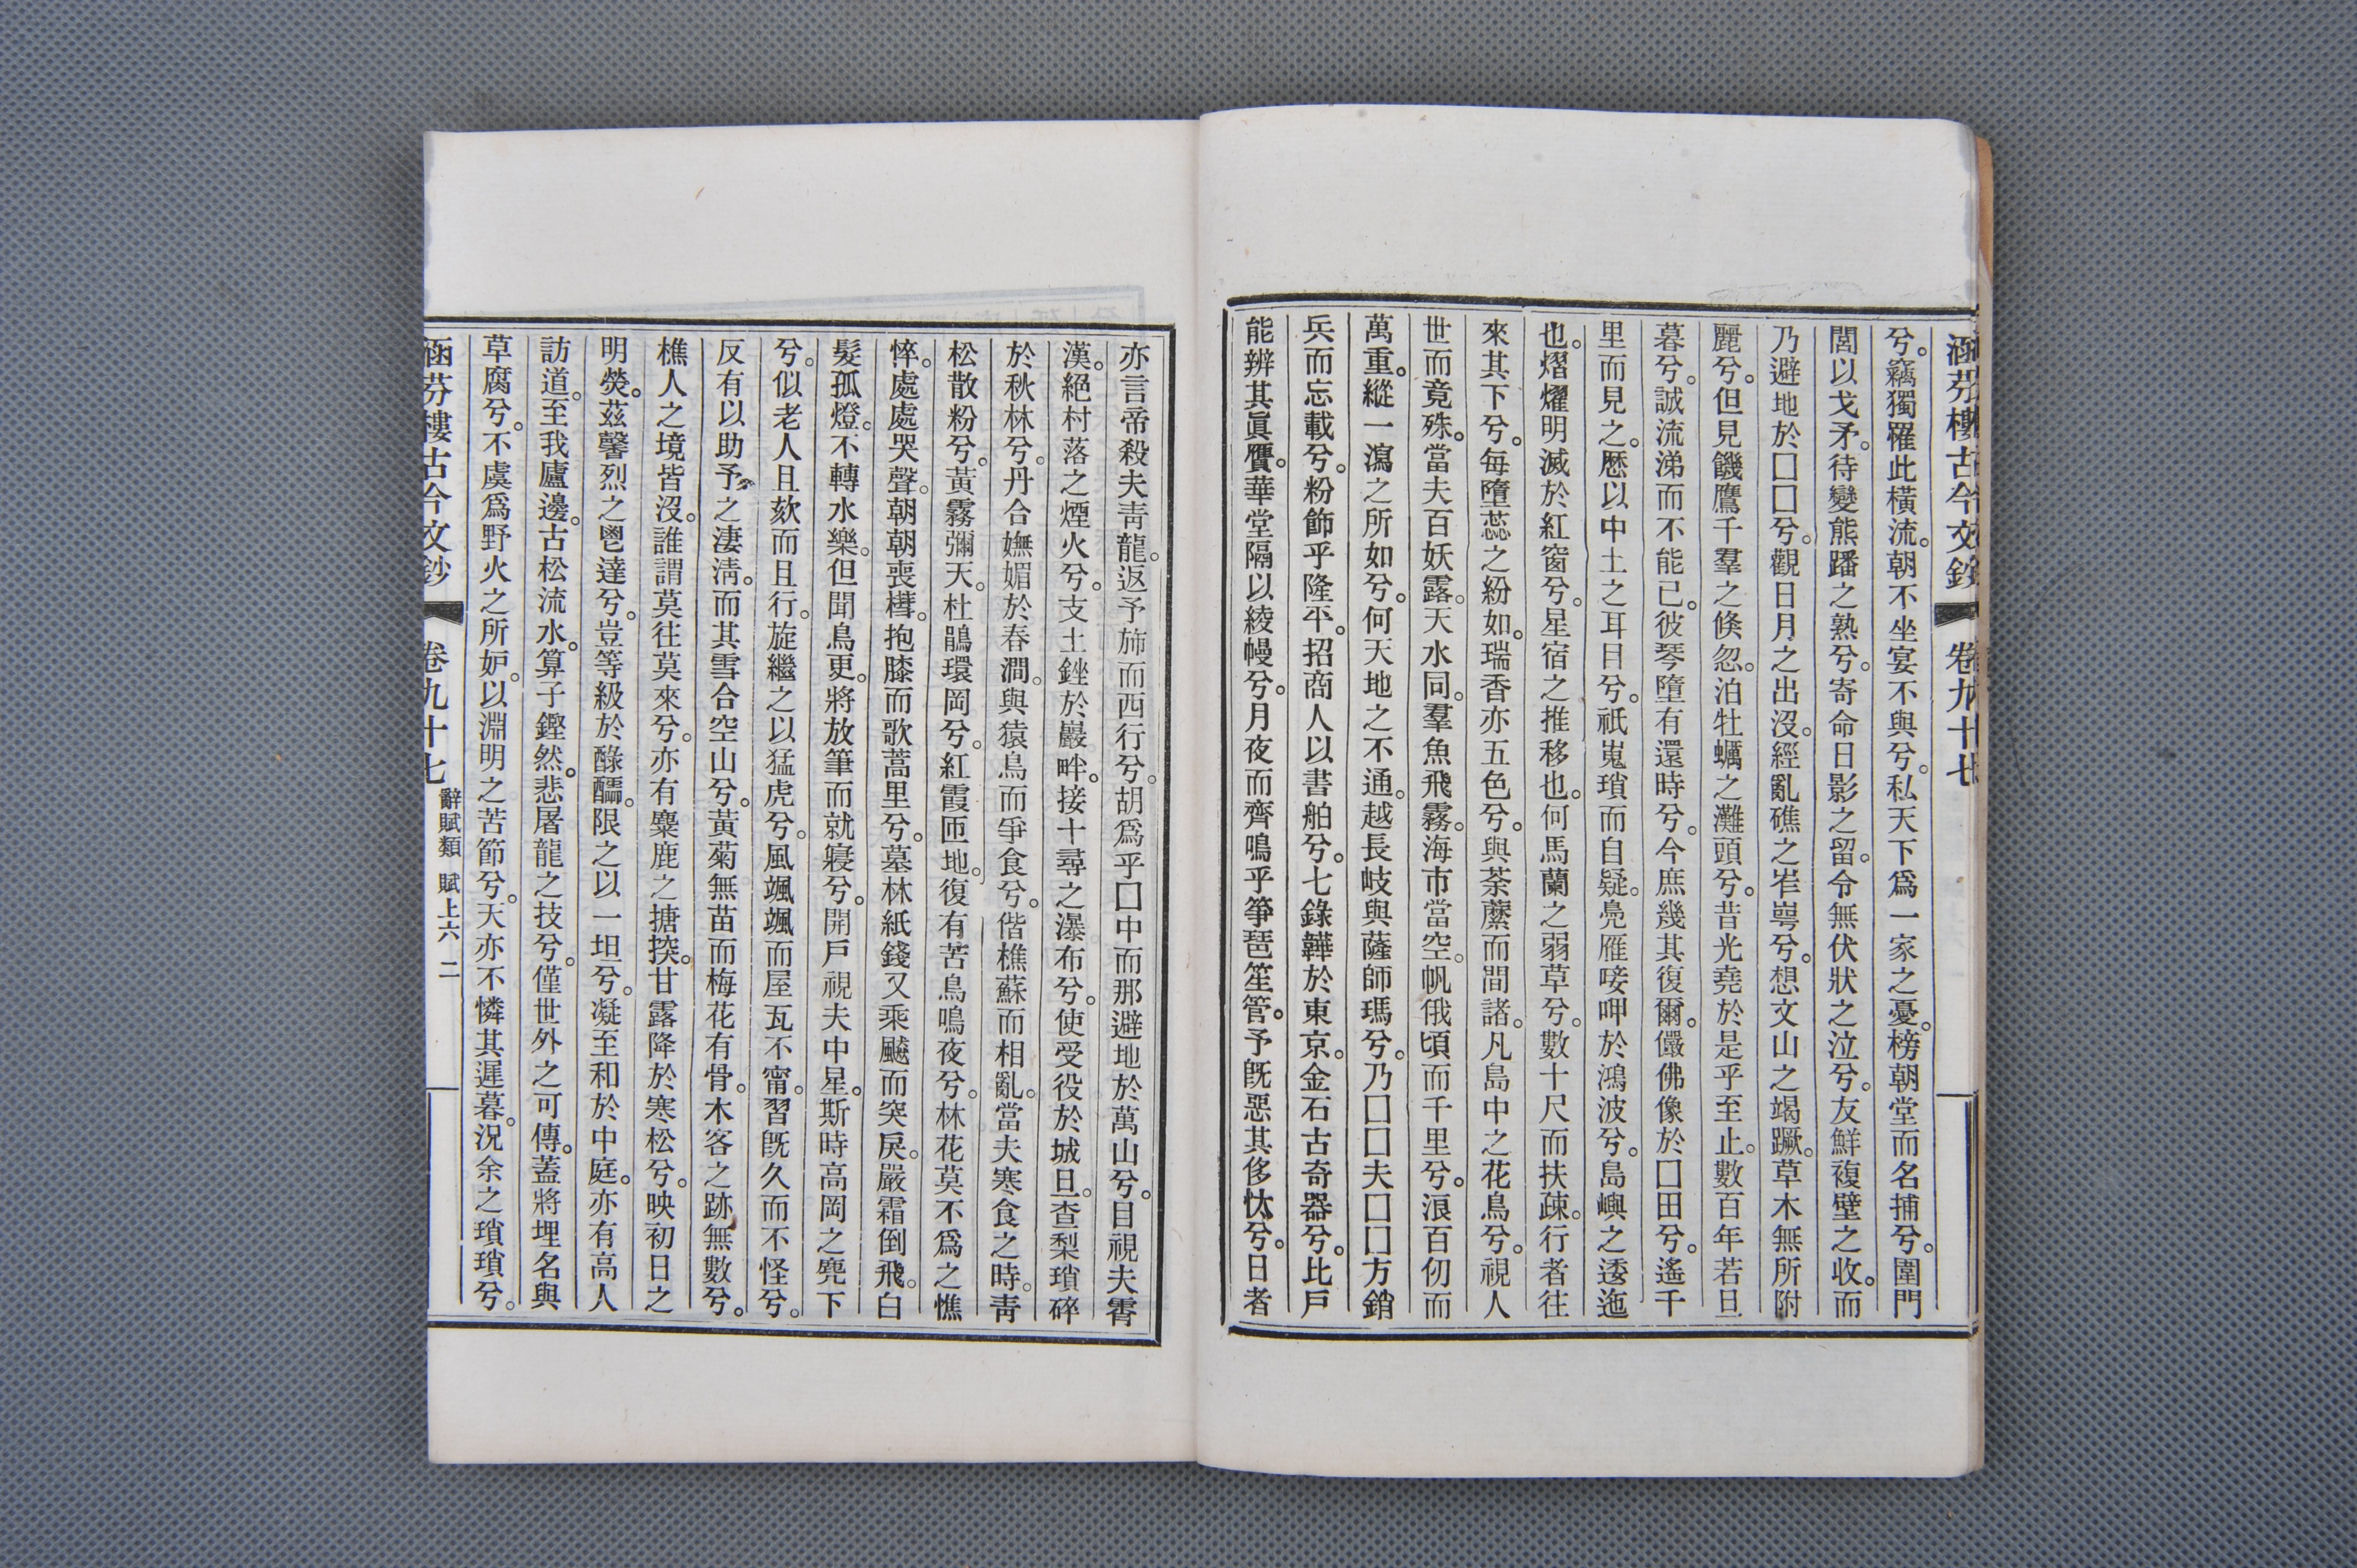 涵芬樓古今文鈔 卷九十七
兮。竊獨罹此橫流。朝不坐宴不與兮。私天下爲一家之憂。榜朝堂而名捕兮。圍門
閭以戈矛。待變熊蹯之熟兮。寄命日影之留。令無伏狀之泣兮。友鮮複壁之收。而
乃避地於囗囗兮。觀日月之出沒。經亂礁之岝崿兮。想文山之竭蹶。草木無所附
麗兮。但見饑鷹千羣之倏忽。泊牡蠣之灘頭兮。昔光堯於是乎至止。數百年若旦
暮兮。誠流涕而不能已。彼琴墮有還時兮。今庶幾其復爾。儼佛像於囗田兮。遙千
里而見之。愍以中土之耳目兮。祇嵬瑣而自疑。鳧雁唼呷於鴻波兮。島嶼之逶迤
也。熠燿明滅於紅窗兮。星宿之推移也。何馬蘭之弱草兮。數十尺而扶疎。行者往
來其下兮。每墮蕊之紛如。瑞香亦五色兮。與荼蘼而間諸。凡島中之花鳥兮。視人
世而竟殊。當夫百妖露。天水同。羣魚飛霧。海市當空。帆俄頃而千里兮。浪百仞而
萬重。縱一瀉之所如兮。何天地之不通。越長岐與薩師瑪兮。乃囗囗夫囗囗方銷
兵而忘載兮。粉飾乎隆平。招商人以書舶兮。七錄韡於東京。金石古奇器兮。比戶
能辨其眞贋。華堂隔以綾幔兮。月夜而齊鳴乎箏琶笙管。予旣惡其侈忲兮。日者
亦言帝殺夫靑龍。返予斾而西行兮。胡爲乎囗中而那避地於萬山兮。目視夫霄
漢。絕村落之煙火兮。支土銼於巖畔。接十尋之瀑布兮。使受役於城旦。查梨瑣碎
於秋林兮。丹合嫵媚於春澗。與猿鳥而爭食兮。偕樵蘇而相亂。當夫寒食之時。靑
松散粉兮。黃霧彌天。杜鵑環岡兮。紅霞匝地。復有苦鳥鳴夜兮。林花莫不爲之憔
悴。處處哭聲。朝朝喪槥。抱膝而歌蒿里兮。墓林紙錢又乘飇而突戾。嚴霜倒飛。白
髮孤燈。不轉水樂。但聞鳥更。將放筆而就寢兮。開戶視夫中星。斯時高岡之麂下
兮。似老人且欬而且行。旋繼之以猛虎兮。風颯颯而屋瓦不甯。習旣久而不怪兮。
反有以助予之淒淸。而其雪合空山兮。黃菊無苗而梅花有骨。木客之跡無數兮。
樵人之境皆沒。誰謂莫往莫來兮。亦有麋鹿之搪揬。甘露降於寒松兮。映初日之
明熒。茲馨烈之鬯達兮。豈等級於醁醽。限之以一坦兮。凝至和於中庭。亦有高人
訪道。至我廬邊。古松流水。算子鏗然。悲屠龍之技兮。僅世外之可傳。蓋將埋名與
草腐兮。不虞爲野火之所妒。以淵明之苦節兮。天亦不憐其遲暮。況余之瑣瑣兮。
涵芬樓古今文鈔 卷九十七 辭賦類 賦上六 二